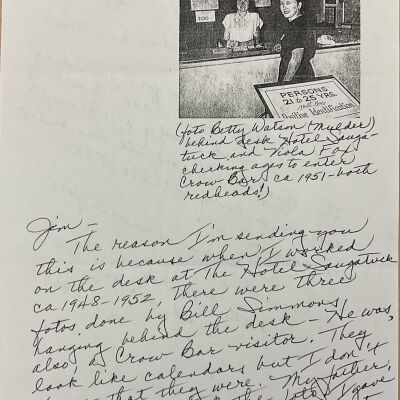 2.00
PERSONS
21 to 25 YRS.
Must Show
Positive Identification
(foto Betty Watson (Mulder)
behind desk Hotel Sauga-
tuck and Nola Fox
checking ages to enter
Crow Bar, ca 1951 - both
redheads!)
Jim -
The reason I'm sending you
this is because when I worked
on the desk at The Hotel Saugatuck
ca 1948-1952, there were three
fotos, done by Bill Simmons,
hanging behind the desk - He was,
also, a Crow Bar visitor. They
look like calendars but I don't
that they were. My father,
the foto I gave